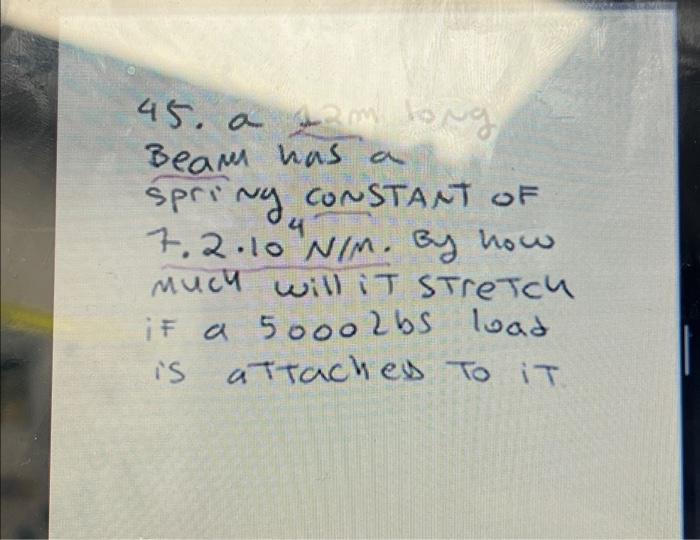 45. a 12m long
Beam has a
spring CONSTANT OF
7.2.10⁴ N/M. By how
Much will iT STreTch
iF a 5000 lbs load
is aTTached To iT